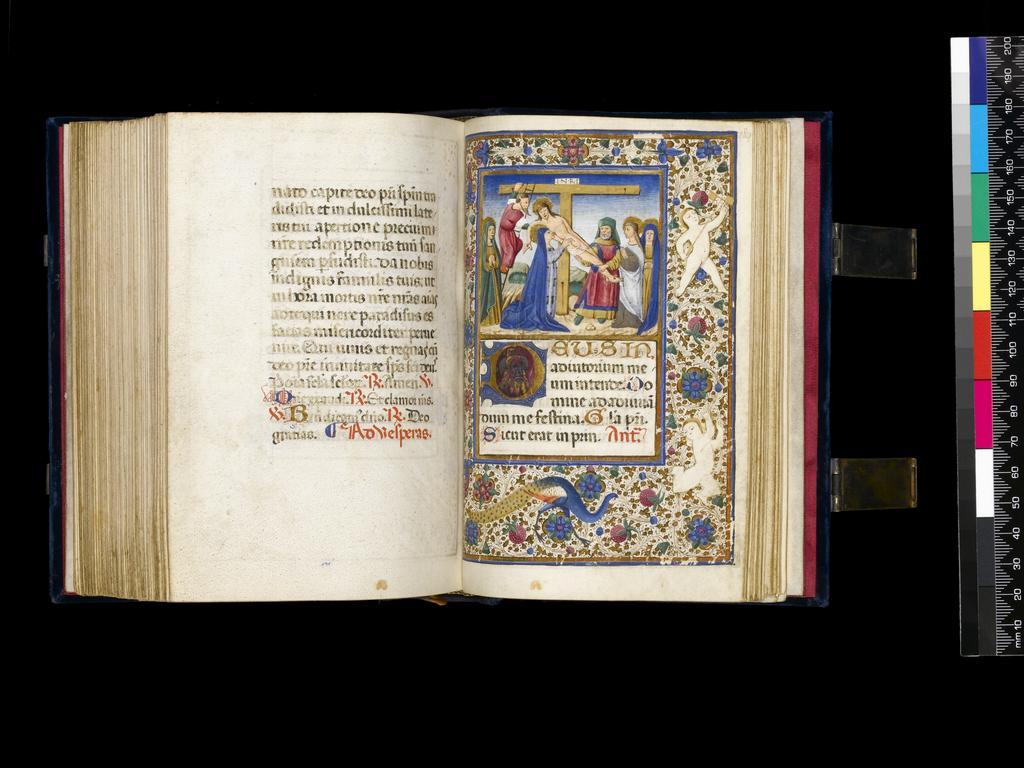 nato capite deo pri spiritum
didisti et in dulcissimi late
ris tui apertione preciu m
nre redemptionis tuũ san
guinem
da nobis
indignis famulis tuis, ut
in hora mortis nre
paradisus es
facias misericorditer perue
nire. Qui uiuis et regnas cũ
deo pre in unitate sps sci deus.
R. Amen. V.
R. Et clamor ms.
V. R. Deo
gratias. Ad Vesperas.
INRI
DEUS IN
adiutorium me
um intende. Do
mine ad adiuuã
dum me festina. Gla pri.
Sicut erat in prin. Ant.
mm 10 20 30 40 50 60 70 80 90 100 110 120 130 140 150 160 170 180 190 200